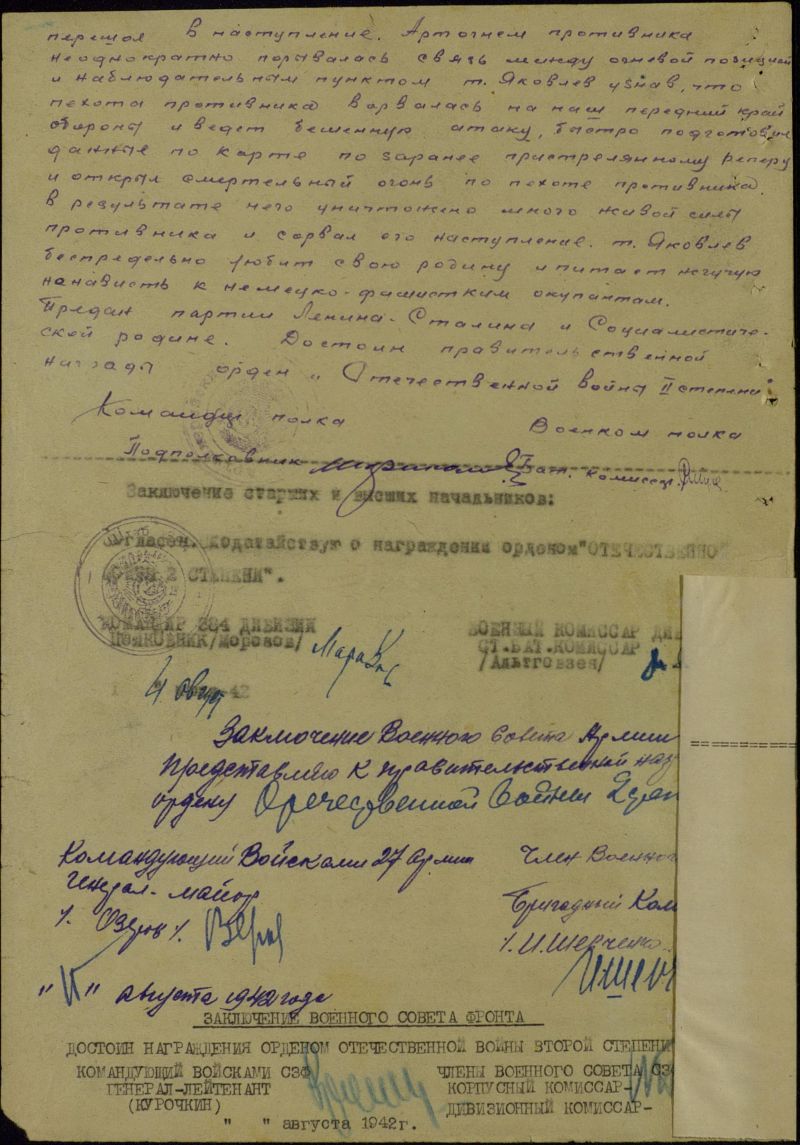 перешол в наступление. Артогнем противника
неоднократно порывалась связь между огневой позицией
и наблюдательным пунктом т. Яковлев узнав, что
пехота противника ворвалась на наш передний край
обороны и ведет бешенную атаку, быстро подготовил
данные по карте по заранее пристрелянному реперу
и открыл смертельный огонь по пехоте противника.
в результате чего уничтожено много живой силы
противника и сорвал его наступление. т. Яковлев
беспредельно любит свою родину и питает жгучую
ненависть к немецко-фашистким окупантам.
Предан партии Ленина-Сталина и Социалистиче-
ской родине. Достоин правительственной
награды орден „Отечественной война II степени"
Командир полка Военком полка
Подполковник Ст. Бат. комиссар
Заключение старших и высших начальников:
Согласен. Ходатайствую о награждении орденом "ОТЕЧЕСТВЕННО
2 СТЕПЕНИ".
КОМАНДИР 384 ДИВИЗИИ ВОЕННЫЙ КОМИССАР ДИ
ПОЛКОВНИК /Морозов/ СТ.БАТ.КОМИССАР
/Альтговзен/
4 август 42
Заключение Военного Совета Армии
Представляю к правительственной наг
ордену Отечественной Войны 2
Командующий Войсками 27 армии Член Военног
Генерал-майор Бригадный Ком
/. Озеров /. /. И.Шевченко
" " августа 1942 года
ЗАКЛЮЧЕНИЕ ВОЕННОГО СОВЕТА ФРОНТА
ДОСТОИН НАГРАЖДЕНИЯ ОРДЕНОМ ОТЕЧЕСТВЕННОЙ ВОЙНЫ ВТОРОЙ СТЕПЕНИ
КОМАНДУЮЩИЙ ВОЙСКАМИ СЗФ ЧЛЕНЫ ВОЕННОГО СОВЕТА СЗ
ГЕНЕРАЛ-ЛЕЙТЕНАНТ КОРПУСНЫЙ КОМИССАР-
(КУРОЧКИН) ДИВИЗИОННЫЙ КОМИССАР-
" " августа 1942г.